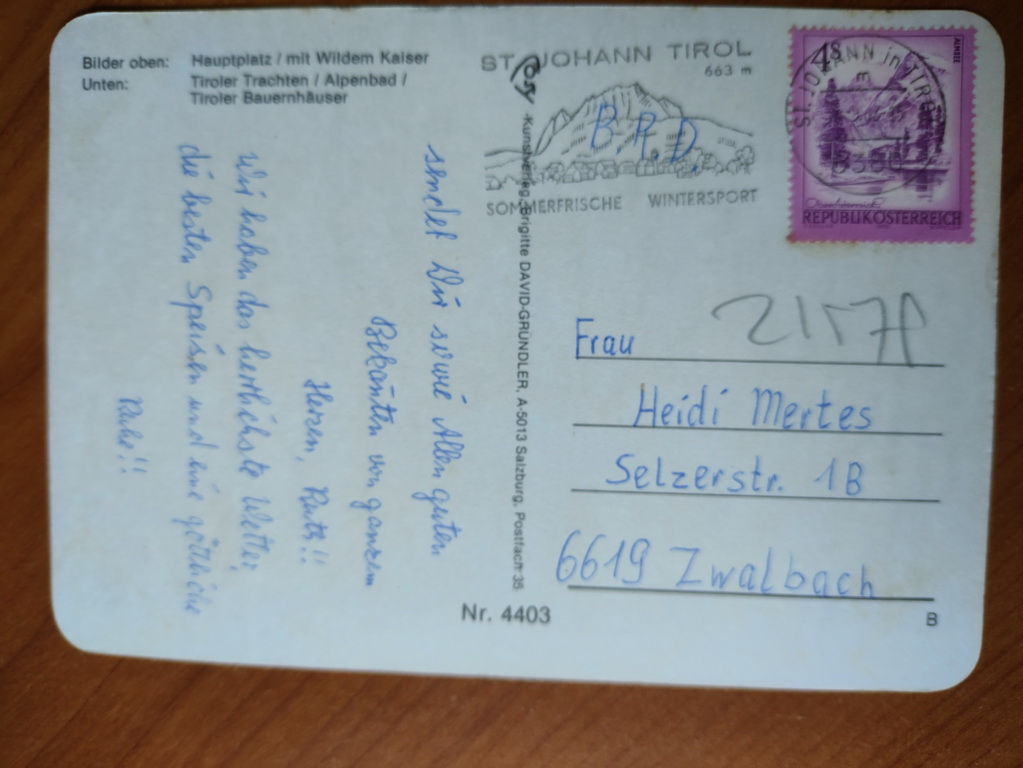 Bilder oben: Hauptplatz / mit Wildem Kaiser
Unten: Tiroler Trachten / Alpenbad /
Tiroler Bauernhäuser
ST. JOHANN TIROL
663 m
SOMMERFRISCHE WINTERSPORT
BRD
4S
ALMSEE
REPUBLIK ÖSTERREICH
ST. JOHANN in TIROL
sendet Dir sowie Allen guten
Bekannten von ganzem
Herzen, Ruth!!
Wir haben das herrlichste Wetter,
die besten Speisen und eine göttliche
Ruhe!!
Kunstverlag Brigitte DAVID-GRÜNDLER, A-5013 Salzburg, Postfach 35
Frau
Heidi Mertes
Selzerstr. 1B
6619 Zwalbach
Nr. 4403
B